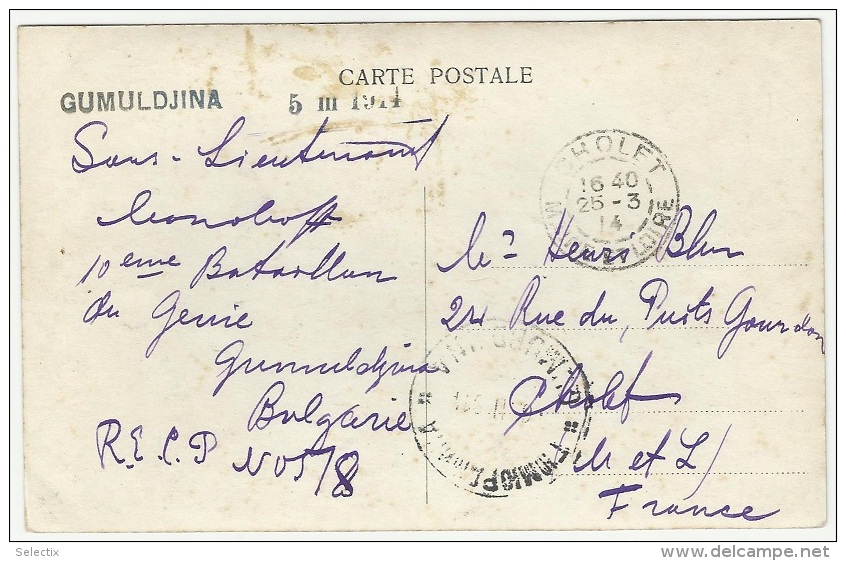 CARTE POSTALE
GUMULDJINA 5 III 1914
Sous-Lieutenant
10eme Bataillon
du Genie
Gumuldjina
Bulgarie
R.E.C.P No 5718
CHOLET
16 40
25 - 3
14
LOIRE
Mr Henri Blun
24 Rue du, Puits Gourdon
Cholet
M et L/
France
Selectix
www.delcampe.net